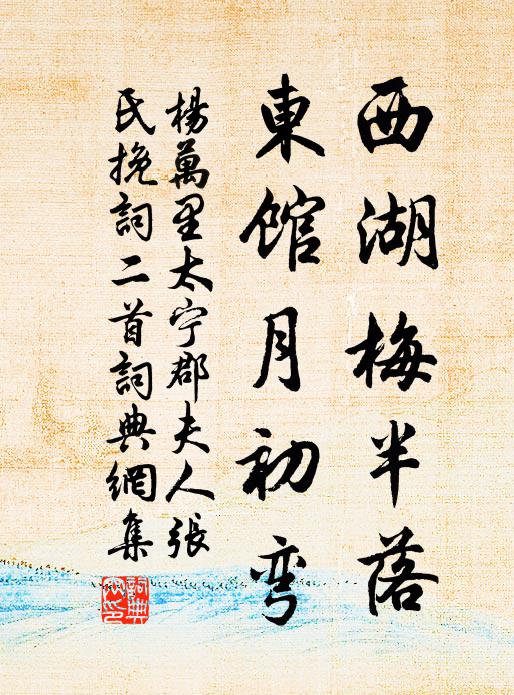 西湖梅半落
東館月初弯
楊萬里太宁郡夫人張
氏挽詞二首詞典網集